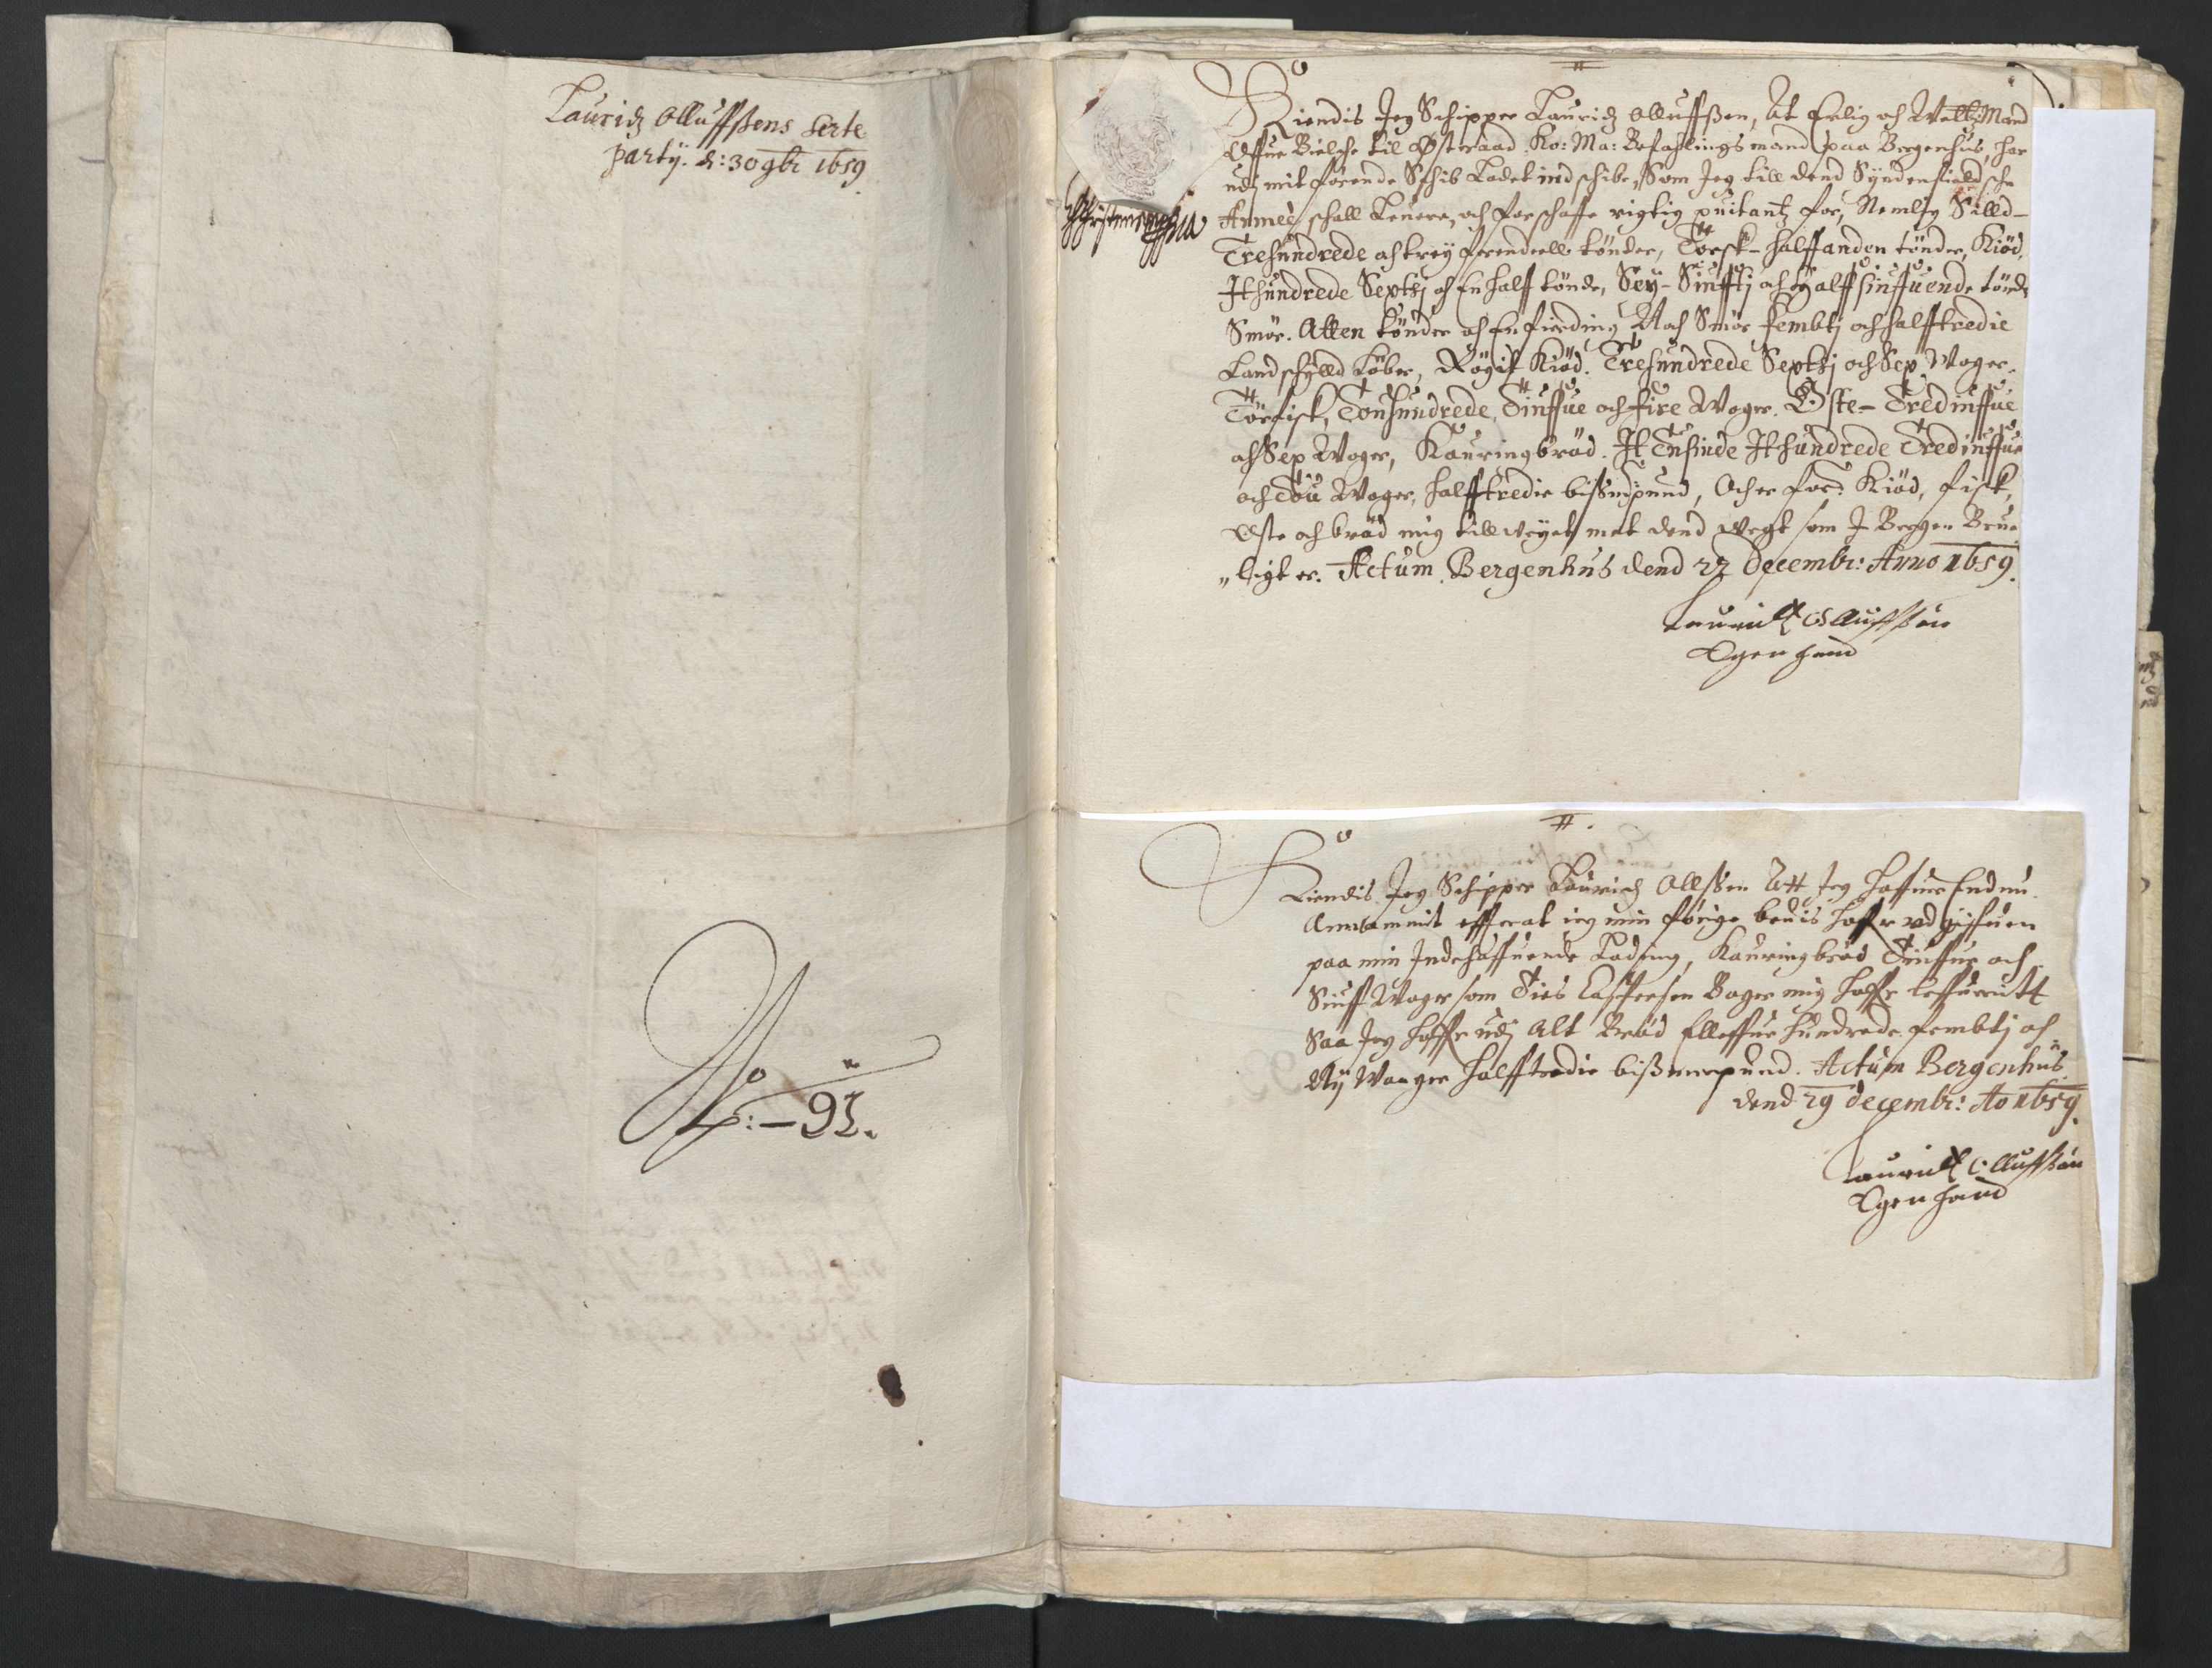 Lauridz Olluffßens Serte
party. d: 30 9br 1659
No: - 93.
Kiendis Jeg Schipper Lauridz Olluffßen, At Erlig och Welb: Mand
Offue Bielche til Østeraad Ko: Ma: Befahlings mand paa Bergenhus, har
udj mit førende Schib Ladet indschibe, Som Jeg till dend Syndenfieldsche
Armeé schall Leuere, och forschaffe rigtig quitantz for, Nemlig Silld -
Trehundrede och trej fierendeell tønder, Torsk - halffanden tønder, Kiød,
It hundrede Sextj och En halff tønde, Sey - Siufftj och halff siuffuende tønde
Smør. Atten tønder och En fierding, Noch Smør fembtj och halfftredie
Landschylld Løber, Røgit Kiød. Trehundrede Sextj och Sex Woger.
Törfisk, Touhundrede, Tiuffue och fire Woger. Oste - Trediuffue
och Sex Woger, Kauringbrød. It Tusinde It hundrede Trediuffue
och Tou Woger, halfftredie bißmpund, Och er for: Kiød, fisk,
Oste och brød mig tillweyet met dend wegt som J Bergen Brue
"ligt er. Actum Bergenhus dend 22 Decembr: Anno 1659.
Lauridtz Olluffßøn
Egen hand
Kiendis Jeg Schipper Lauridz Ollßen Att Jeg haffuer Endnu
Annammit effter at ieg min førige beuis haffr udgiffuen
paa min Indehaffuende Lading, Kauringbrød Tiuffue och
Siuff Woger som Dies Casperßen Bager mig haffr leffuerutt
Saa Jeg haffr udj Alt Brød Elleffue hundrede fembtj och
Nij Waager halfftredie bißmerpund. Actum Bergenhus
dend 29 decembr: Ao 1659.
Lauridtz Olluffßøn
Egen hand